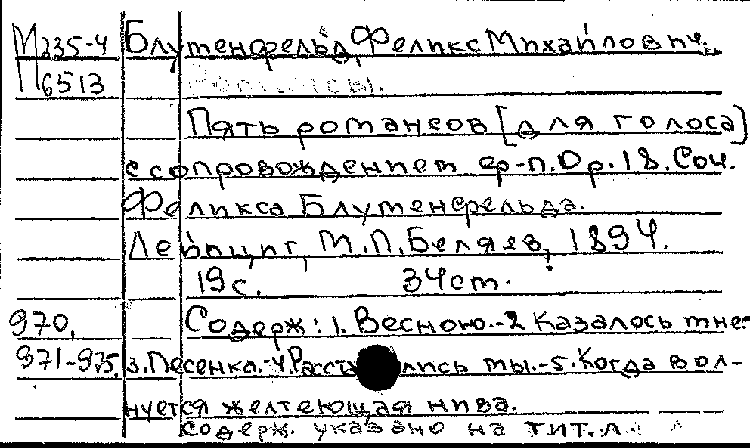 М235-4 Блуменфельд, Феликс Михайлович.
П6513 Романсы.
Пять романсов [для голоса]
с сопровождением ф-п. Op. 18. Соч.
Феликса Блуменфельда.
Лейпциг, М.П. Беляев, 1894.
19с. 34cm.
970, Содерж: 1. Весною.-2 Казалось мне-
971-975. 3. Песенка.-4. Расст лись мы.-5. Когда вол-
нуется желтеющая нива.
содерж. указано на тит.л.